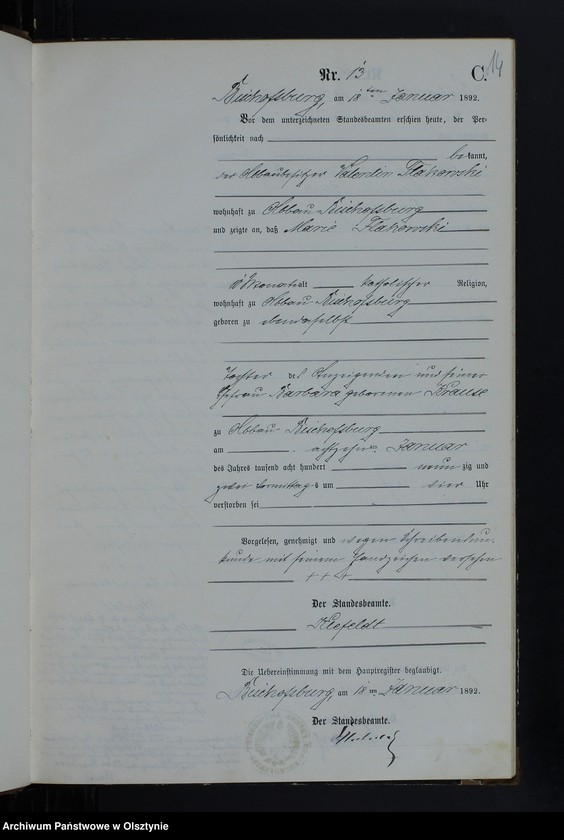 Nr. 13
C.
14
Bischofsburg, am 18ten Januar 1892.
Vor dem unterzeichneten Standesbeamten erschien heute, der Per-
sönlichkeit nach
bekannt,
der Abbaubesitzer Valentin
wohnhaft zu Abbau Bischofsburg
und zeigte an, daß Marie
Monate alt katholischer Religion,
wohnhaft zu Abbau Bischofsburg
geboren zu ebendaselbst
Tochter des Anzeigenden und seiner
Ehefrau Barbara geborenen Krause
zu Abbau Bischofsburg
am achtzehnten Januar
des Jahres tausend acht hundert neunzig und
zwei Vormittags um vier Uhr
verstorben sei
Vorgelesen, genehmigt und wegen Schreibensun-
kunde mit seinem Handzeichen versehen
+++
Der Standesbeamte.
Klefeldt
Die Uebereinstimmung mit dem Hauptregister beglaubigt.
Bischofsburg, am 18ten Januar 1892.
Der Standesbeamte.
Archiwum Państwowe w Olsztynie